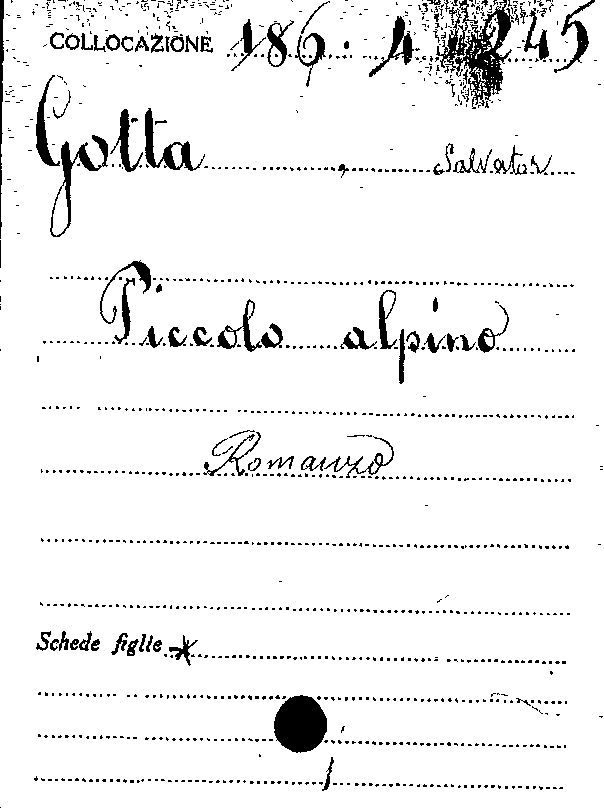 COLLOCAZIONE 186. 4. 245
Gotta, Salvator
Piccolo alpino
Romanzo
Schede figlie *
1